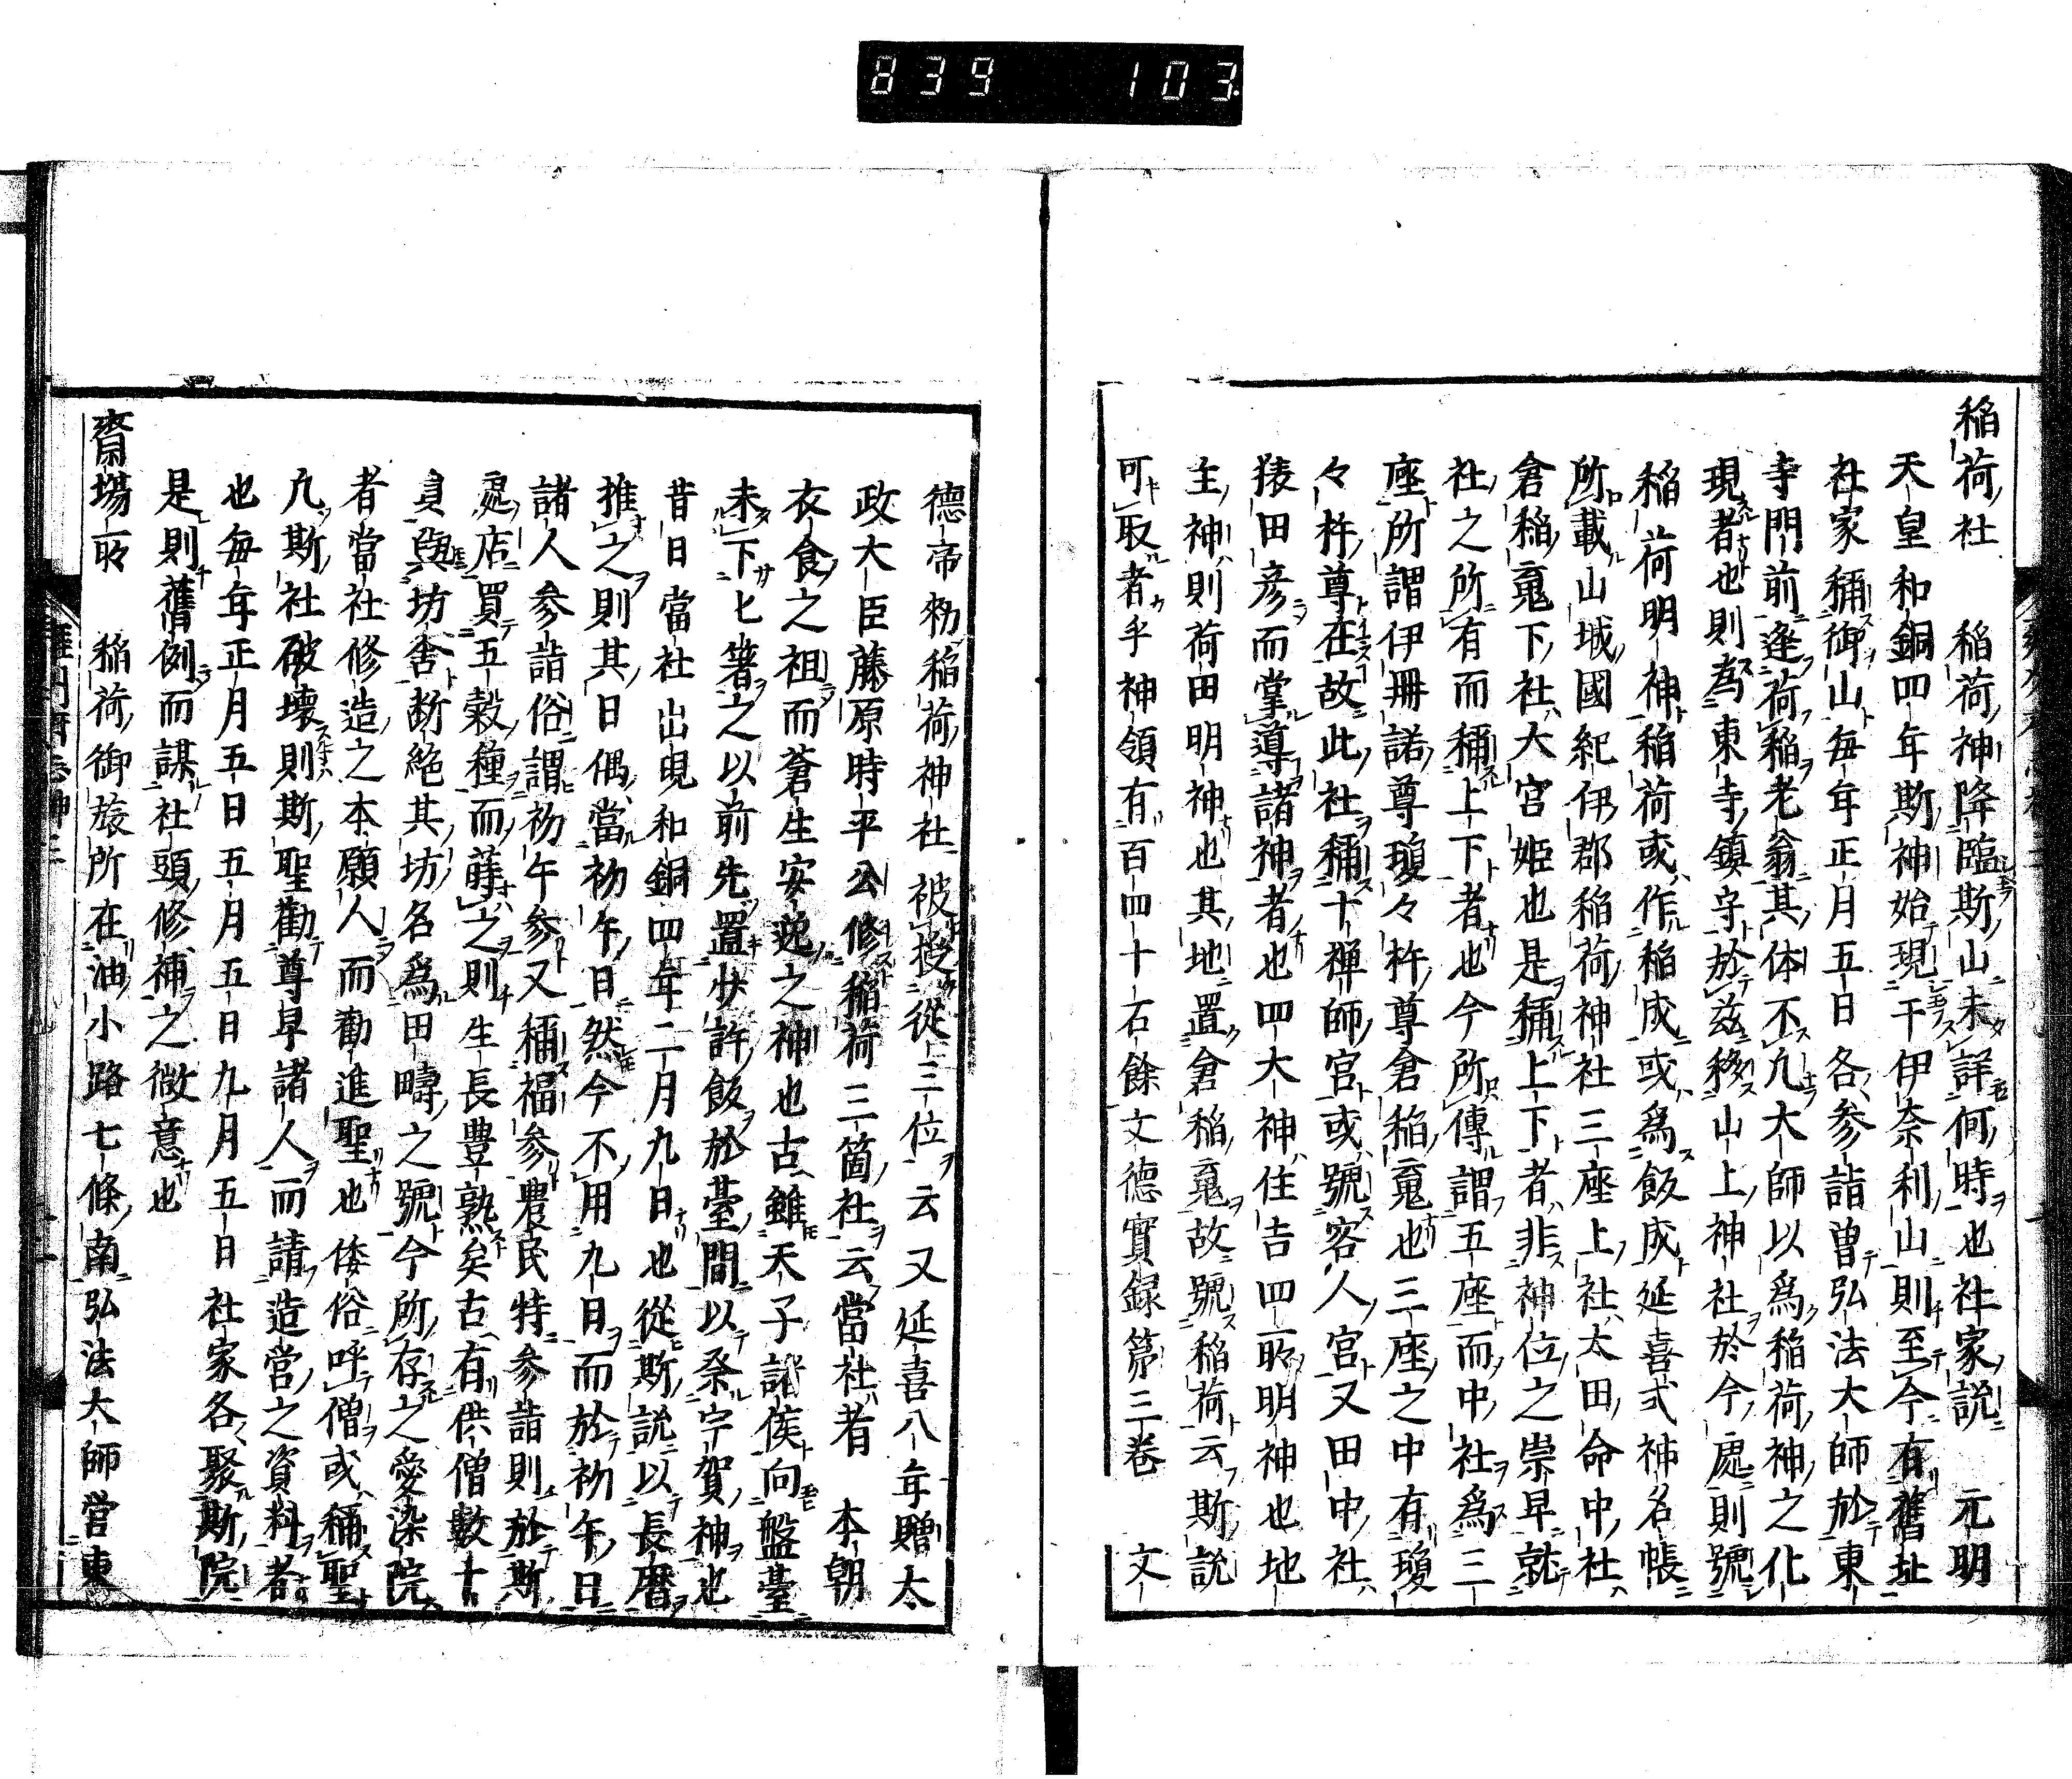 839 103
稲荷社 稲荷神降臨斯山未詳何時也社家説 元明
天皇和銅四年斯神始現干伊奈利山則至今有舊址
社家稱御山毎年正月五日各参詣曽弘法大師於東
寺門前逢荷稲老翁其体不凢大師以爲稲荷神之化
現者也則為東寺鎮守於茲移山上神社於今處則號
稲荷明神稲荷或作稲成或爲飯成延喜式神名帳
所載山城國紀伊郡稲荷神社三座上社太田命中社
倉稲䰟下社大宮姫也是稱上下者非神位之崇早就
社之所有而稱上下者也今所傳謂五座而中社爲三
座所謂伊冊諾尊瓊々杵尊倉稲䰟也三座之中有瓊
々杵尊在故此社稱十禅師宮或號客人宮又田中社
猿田彦而掌導諸神者也四大神住吉四所明神也地
主神則荷田明神也其地置倉稲䰟故號稲荷云斯説
可取者乎神領有百四十石餘文德實録第三卷 文
德帝勑稲荷神社被授從三位云又延喜八年贈太
政大臣藤原時平公修稲荷三箇社云當社者 本朝
衣食之祖而蒼生安逸之神也古雖天子諸侯向盤臺
未下匕箸之以前先置少許飯於臺間以祭宇賀神也
昔日當社出現和銅四年二月九日也從斯説以長暦
推之則其日偶當初午日然今不用九日而於初午日
諸人参詣俗謂初午参又稱福参農民特参詣則於斯
處店買五穀種而蒔之則生長豊熟矣古有供僧數十
員與坊舎断絶其坊名爲田疇之號今所存之愛染院
者當社修造之本願人而勸進聖也倭俗呼僧或稱聖
凢斯社破壊則斯聖勸尊卑諸人而請造営之資料者
也毎年正月五日五月五日九月五日社家各聚斯院
是則舊例而謀社頭修補之微意也
齋場所 稲荷御旅所在油小路七條南弘法大師営東